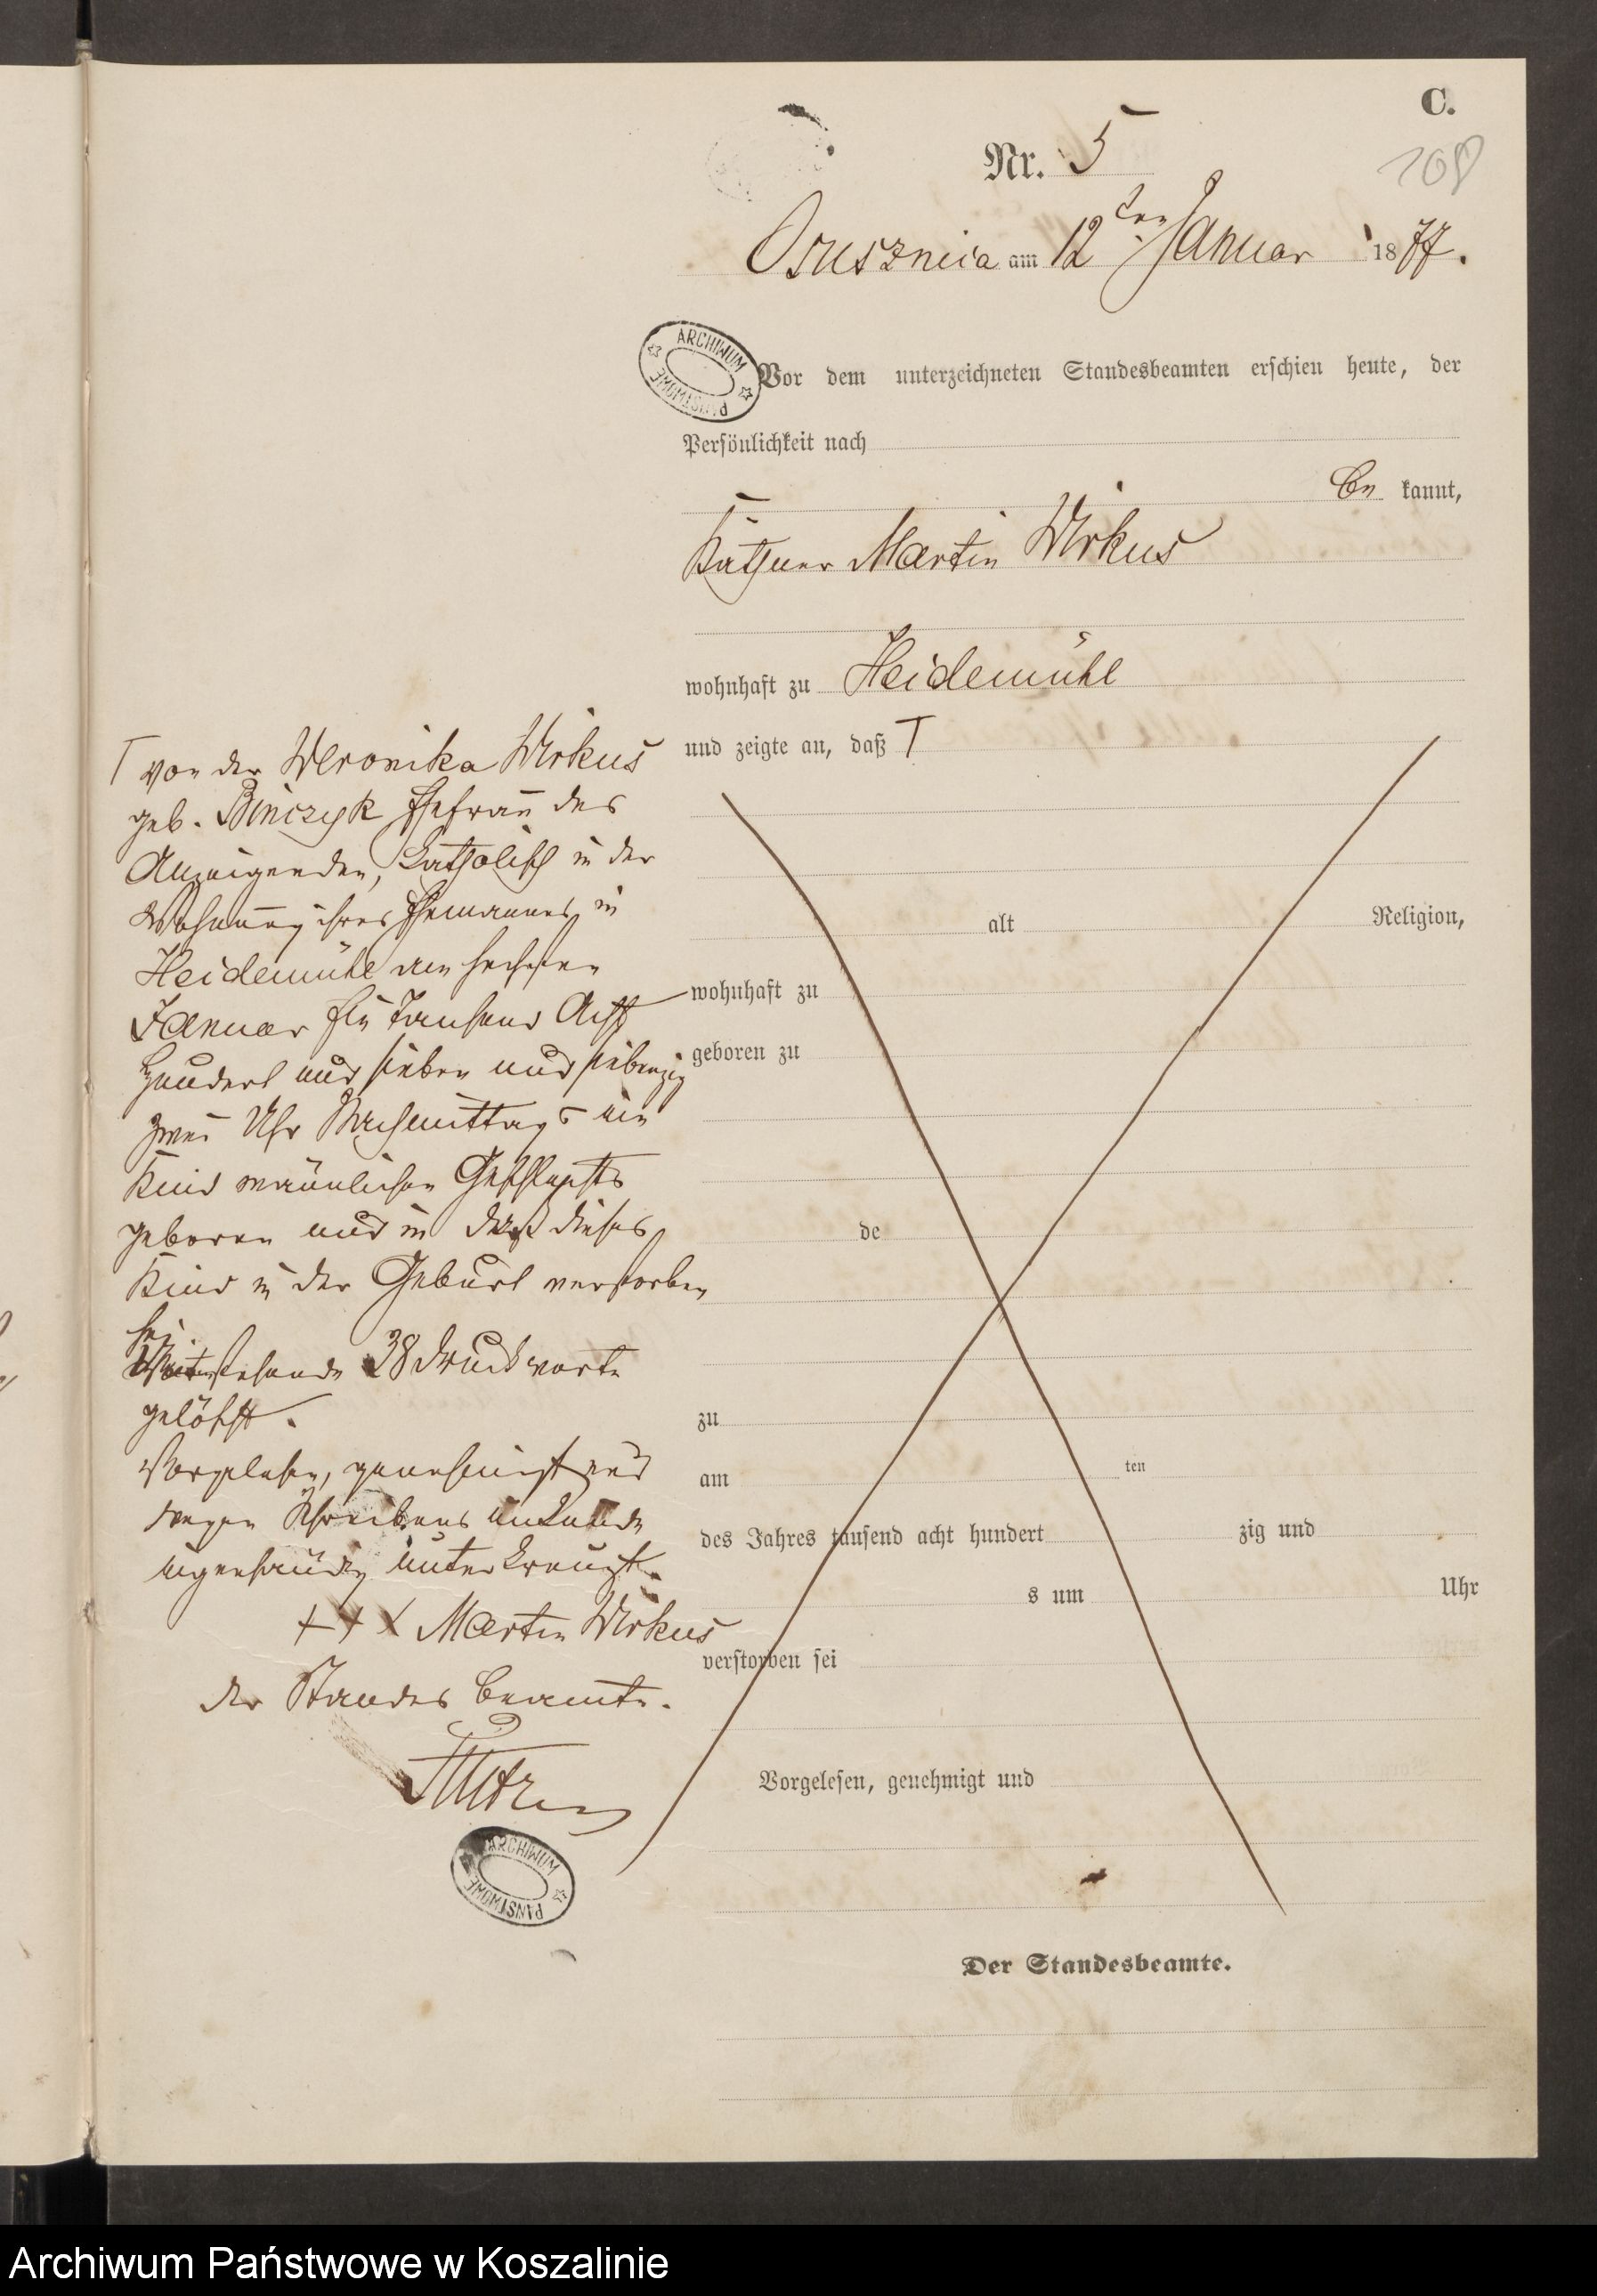 C.
Nr. 5
108
Osusznica am 12ten Januar 1877.
ARCHIWUM PAŃSTWOWE
Vor dem unterzeichneten Standesbeamten erschien heute, der
Persönlichkeit nach
be kannt,
Käthner Martin Wirkus
wohnhaft zu Heidemühl
und zeigte an, daß T
T von der Weronika Wirkus
geb. Binczyk Ehefrau des
Anzeigenden, katholisch in der
Wohnung ihres Ehemannes in
Heidemühl am sechsten
Januar Ein Tausend Acht
Hundert und sieben und siebenzig
zwei Uhr Nachmittags ein
Kind männlichen Geschlechts
geboren und in dieses
Kind in der Geburt verstorben
sei.
38 Druckworte
gelöscht.
Vorgelesen, genehmigt und
wegen Schreibens unkunde
eigenhändig unterkreuzt.
+ + + Martin Wirkus
der Standes beamte.
ARCHIWUM PAŃSTWOWE
alt Religion,
wohnhaft zu
geboren zu
de
zu
am ten
des Jahres tausend acht hundert zig und
s um Uhr
verstorben sei
Vorgelesen, genehmigt und
Der Standesbeamte.
Archiwum Państwowe w Koszalinie